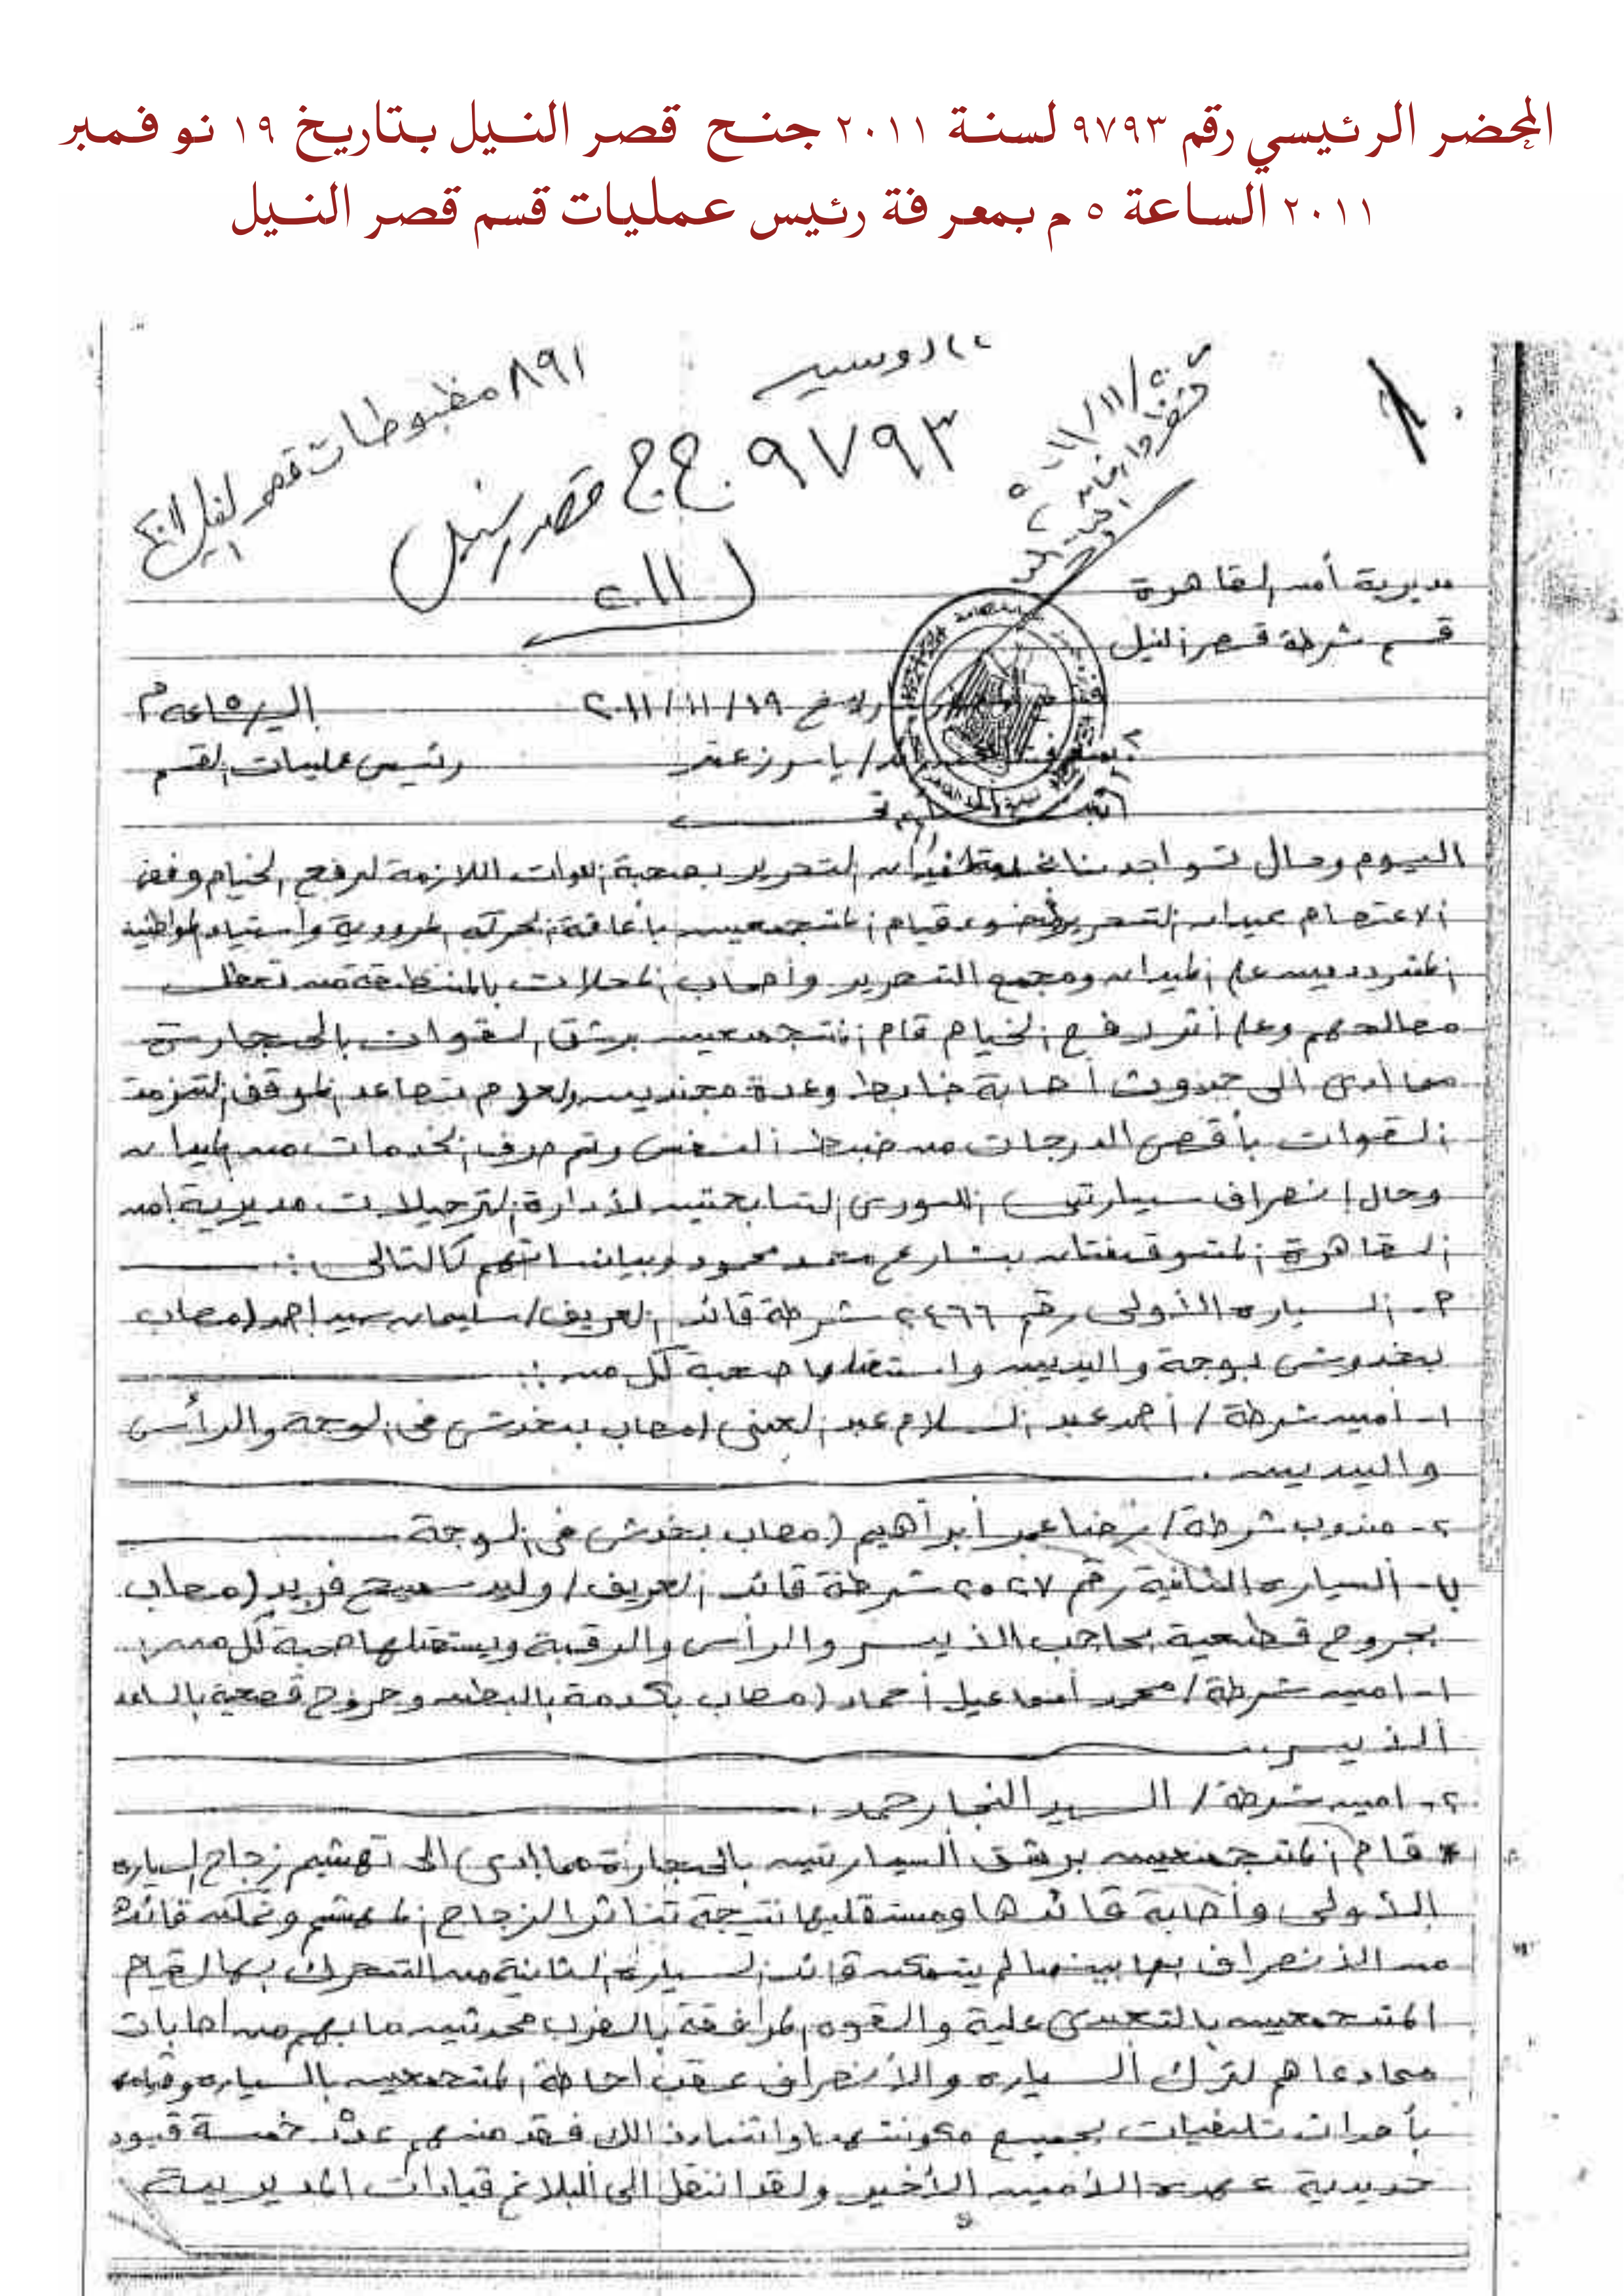 المحضر الرئيسي رقم ٩٧٩٣ لسنة ٢٠١١ جنح قصر النيل بتاريخ ١٩ نوفمبر
٢٠١١ الساعة ٥ م بمعرفة رئيس عمليات قسم قصر النيل
٨٩١ مضبوطات قصر النيل
٩٧٩٣ ج ج قصر النيل
مديرية أمن القاهرة
قسم شرطة قصر النيل
٢٠١١/١١/١٩
رئيس عمليات القسم
اليوم وحال تواجدنا التحرير بصحبة القوات اللازمة لرفع الخيام وفض
الاعتصام بميدان التحرير قيام المتجمعين بأعاقة الحركة المرورية وأستياء المواطنين
المترددين على الميدان ومجمع التحرير وأصحاب المحلات بالمنطقة من تعطل
مصالحهم وعلى أثر رفع الخيام قام المتجمعين برشق القوات بالحجارة
مما أدى الى حدوث أصابة ضابط وعدة مجندين ولعدم تصاعد الموقف التزمت
القوات بأقصى الدرجات من ضبط النفس وتم صرف الخدمات من الميدان
وحال إنصراف سيارتى اللورى التابعتين لأدارة الترحيلات مديرية أمن
القاهرة المتوقفتان بشارع محمد محمود وبيانتهم كالتالى :
م- السياره الأولى رقم ٢٤٦٦ شرطة قائد العريف/ سليمان سيد احمد (مصاب
بخدوش بوجة واليدين واستقلها صحبة كل من :
١- أمين شرطة / أحمد عبد السلام عبد الغنى (مصاب بخدوش فى الوجة والرأس
واليدين .
٢- مندوب شرطة / رضا عمر أبرآهيم (مصاب بخدش فى الوجة
ب- السياره الثانية رقم ٢٥٢٧ شرطة قائد العريف / وليد سميح فريد (مصاب
بجروح قطعية بحاجب الأيسر والرأس والرقبة ويستقلها صحبة كل من :
١- امين شرطة / محمد أسماعيل أحماد (مصاب بكدمة بالبطن وجروح قطعية بالساعد
الأيسر
٢- امين شرطة / السيد النجار حمد .
* قام المتجمعين برشق السيارتين بالحجارة مما ادى الى تهشيم زجاج السياره
الأولى وأصابة قائدها ومستقليها نتيجة تناثر الزجاج المهشم وتمكن قائدها
من الأنصراف بها بينما لم يتمكن قائد السياره الثانية من التحرك بها لقيام
المتجمعين بالتعدى علية والقوه المرافقة بالضرب محدثين ما بهم من اصابات
مما دعاهم لترك السياره والأنصراف عقب احاطة المتجمعين بالسياره وقيامهم
بأحداث تلفيات بجميع مكوناتها واثناء ذالك فقد منهم عدد خمسة قيود
حديدية عهدة الأمين الأخير ولقد انتقل الى البلاغ قيادات المديرية